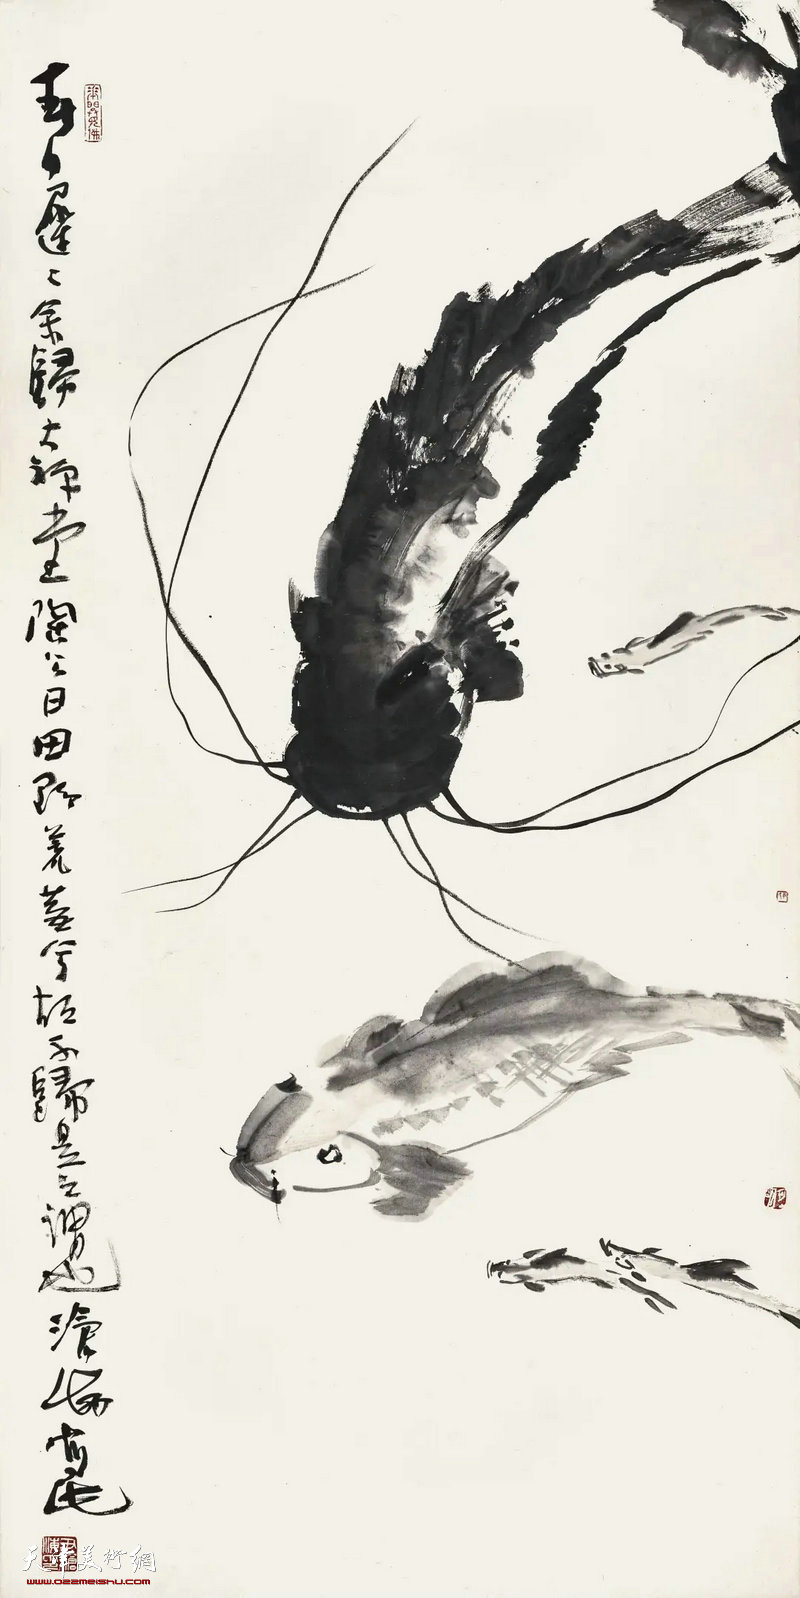 春日遲〻余歸大禅堂陶公曰田野荒蕪兮胡不歸是之謂也滄海
天津美術網
www.022meishu.com